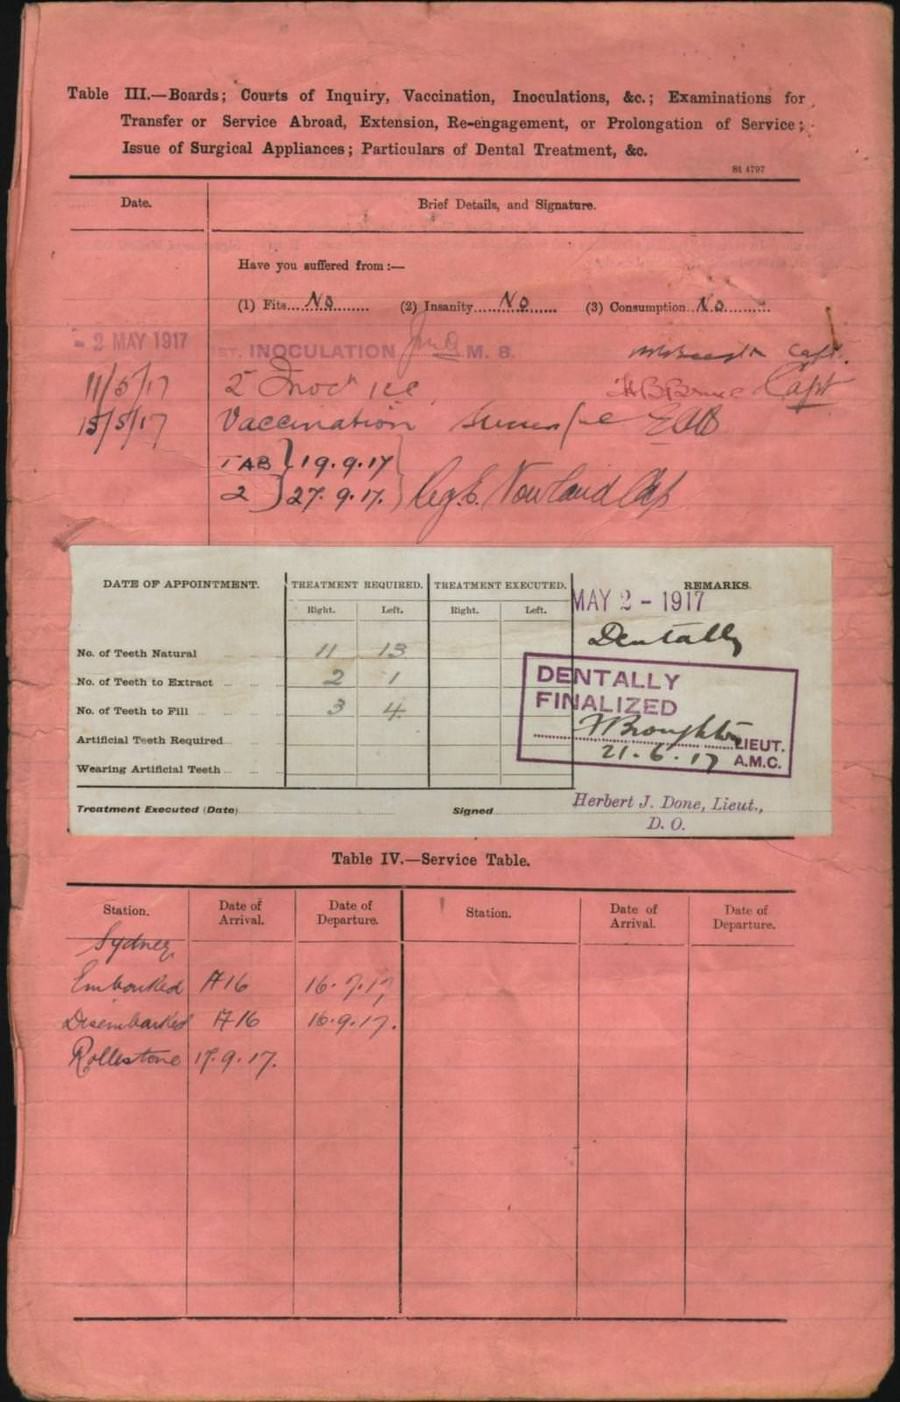 Table III.—Boards; Courts of Inquiry, Vaccination, Inoculations, &c.; Examinations for
Transfer or Service Abroad, Extension, Re-engagement, or Prolongation of Service;
Issue of Surgical Appliances; Particulars of Dental Treatment, &c.
St 4797
Date. Brief Details, and Signature.
Have you suffered from:—
(1) Fits....No........ (2) Insanity....No...... (3) Consumption..No........
- 2 MAY 1917 INOCULATION A.M.S. Capt.
11/5/17 2 Capt
15/5/17 Vaccination
TAB } 19.9.17
2 } 27.9.17.
DATE OF APPOINTMENT. TREATMENT REQUIRED. TREATMENT EXECUTED. REMARKS.
Right. Left. Right. Left. MAY 2 - 1917
Dentally
No. of Teeth Natural 11 13
No. of Teeth to Extract 2 1
No. of Teeth to Fill 3 4
Artificial Teeth Required
Wearing Artificial Teeth
DENTALLY
FINALIZED
Broughton LIEUT.
21.6.17 A.M.C.
Treatment Executed (Date) Signed
Herbert J. Done, Lieut.,
D. O.
Table IV.—Service Table.
Station. Date of Arrival. Date of Departure. Station. Date of Arrival. Date of Departure.
Sydney
Embarked A16 16.7.17
Disembarked A16 16.9.17.
Rollestone 17.9.17.